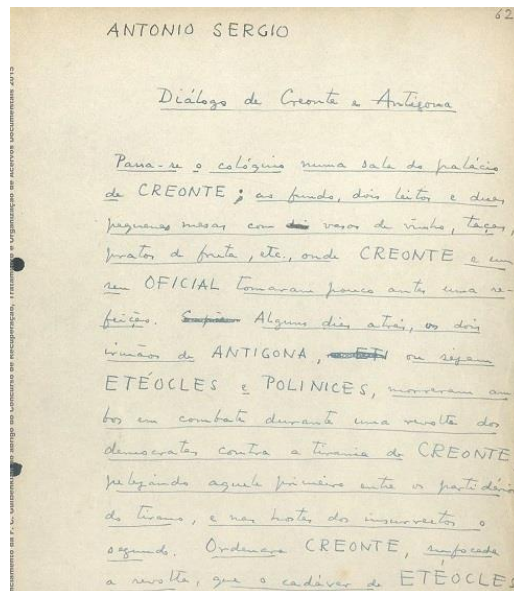 62
ANTONIO SERGIO
Diálogo de Creonte e Antígona
Passa-se o colóquio numa sala do palácio
de CREONTE; ao fundo, dois leitos e duas
pequenas mesas com vasos de vinho, taças,
pratos de fruta, etc., onde CREONTE e um
seu OFICIAL tomaram pouco antes uma re-
feição. Alguns dias atrás, os dois
irmãos de ANTIGONA, ou sejam
ETÉOCLES e POLINICES, morreram am-
bos em combate durante uma revolta dos
democratas contra a tirania de CREONTE
pelejando aquele primeiro entre os partidários
do tirano, e nas hostes dos insurrectos o
segundo. Ordenara CREONTE, sufocada
a revolta, que o cadáver de ETÉOCLES
Organização de Acervos Documentais 2015